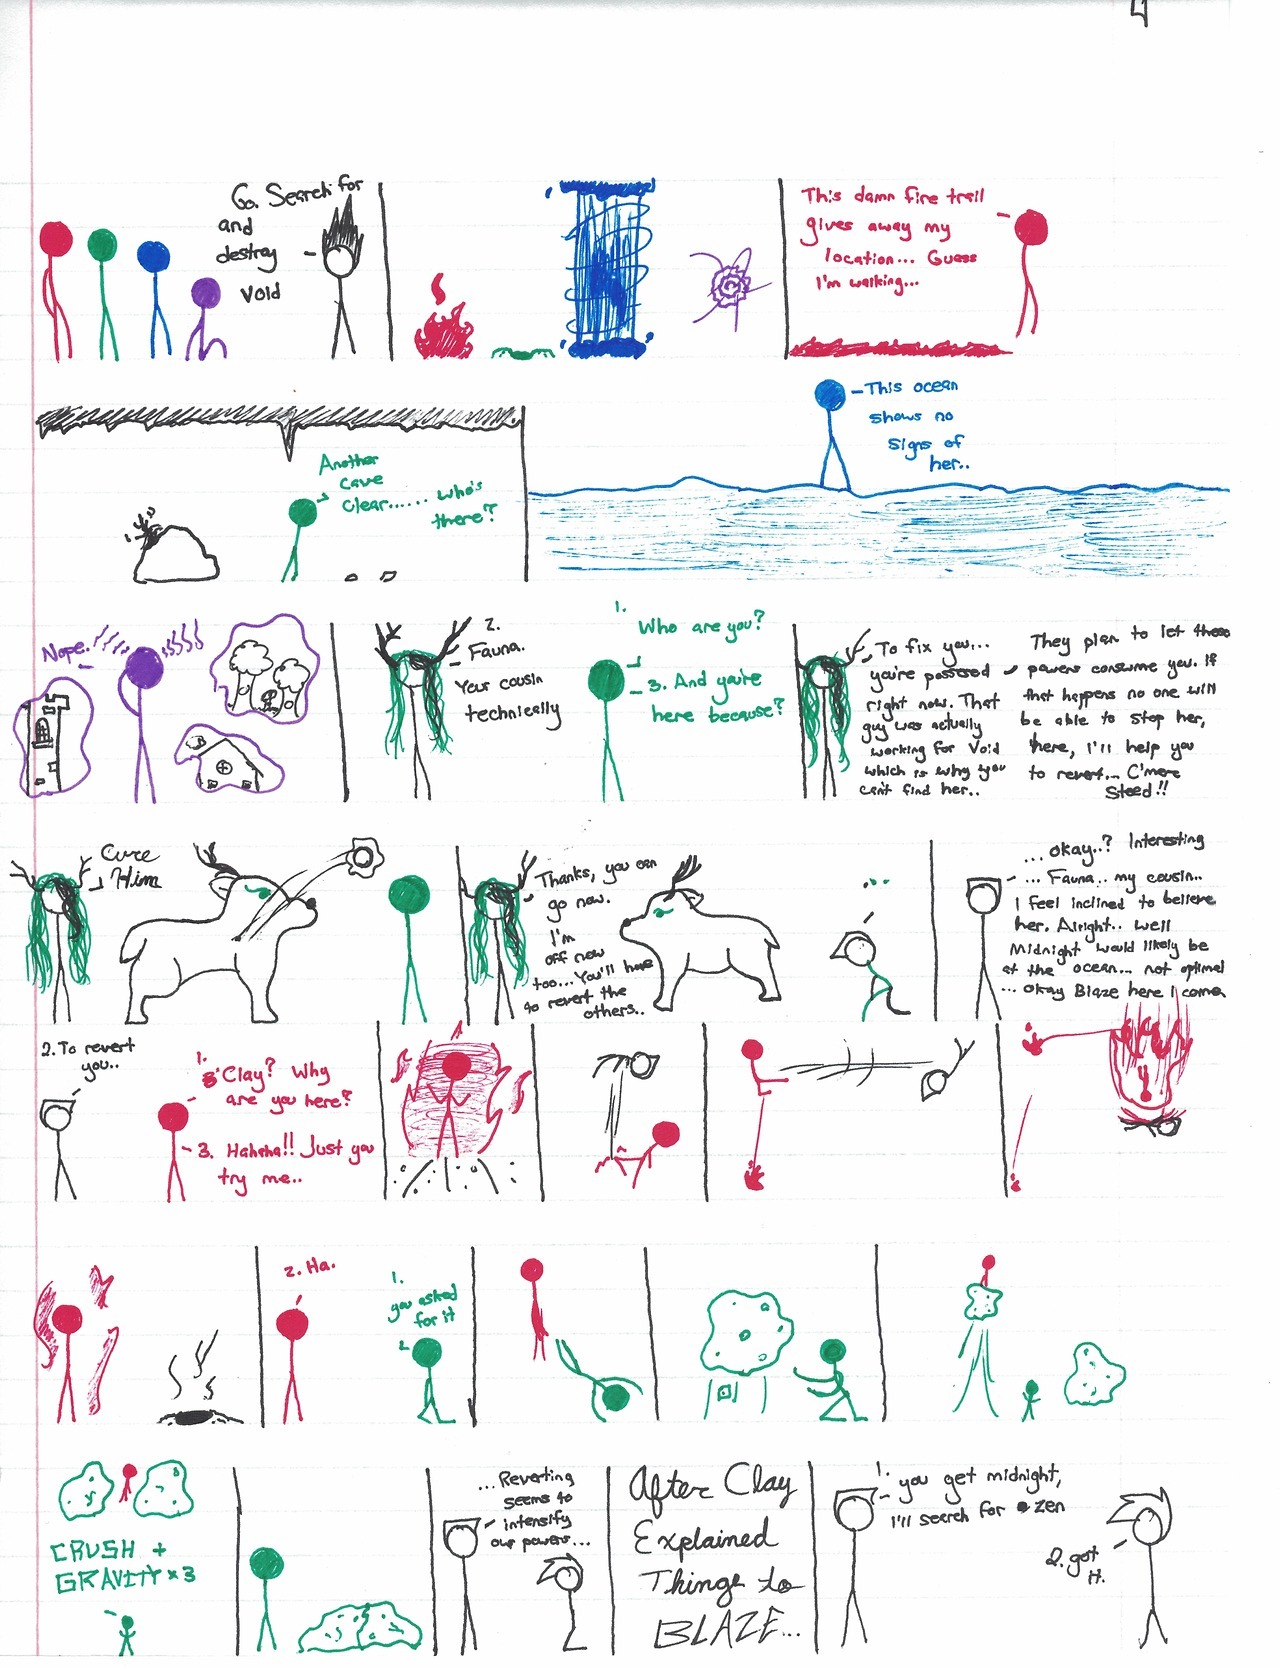 4
Go. Search for
and
destroy
void
This damn fire trail
gives away my
location... Guess
I'm walking...
Another
cave
clear...... who's
there?
This ocean
shows no
signs of
her..
Nope.
2.
Fauna.
Your cousin
technically
1.
Who are you?
3. And you're
here because?
To fix you...
you're possessed
right now. That
guy was actually
working for Void
which is why you
can't find her..
They plan to let those
powers consume you. If
that happens no one will
be able to stop her,
here, I'll help you
to revert... C'mere
Steed!!
Cure
Him
Thanks, you can
go now.
I'm
off now
too... You'll have
to revert the
others..
...
... okay..? Interesting
... Fauna.. my cousin..
I feel inclined to believe
her. Alright.. well
Midnight would likely be
at the ocean... not optimal
... okay Blaze here I come
2. To revert
you..
1.
Clay? Why
are you here?
3. Hahaha!! Just you
try me..
2. Ha.
1.
you asked
for it
CRUSH +
GRAVITY x 3
...Reverting
seems to
intensify
our powers...
After Clay
Explained
Things to
BLAZE...
1. you get midnight,
I'll search for zen
2. got
it.